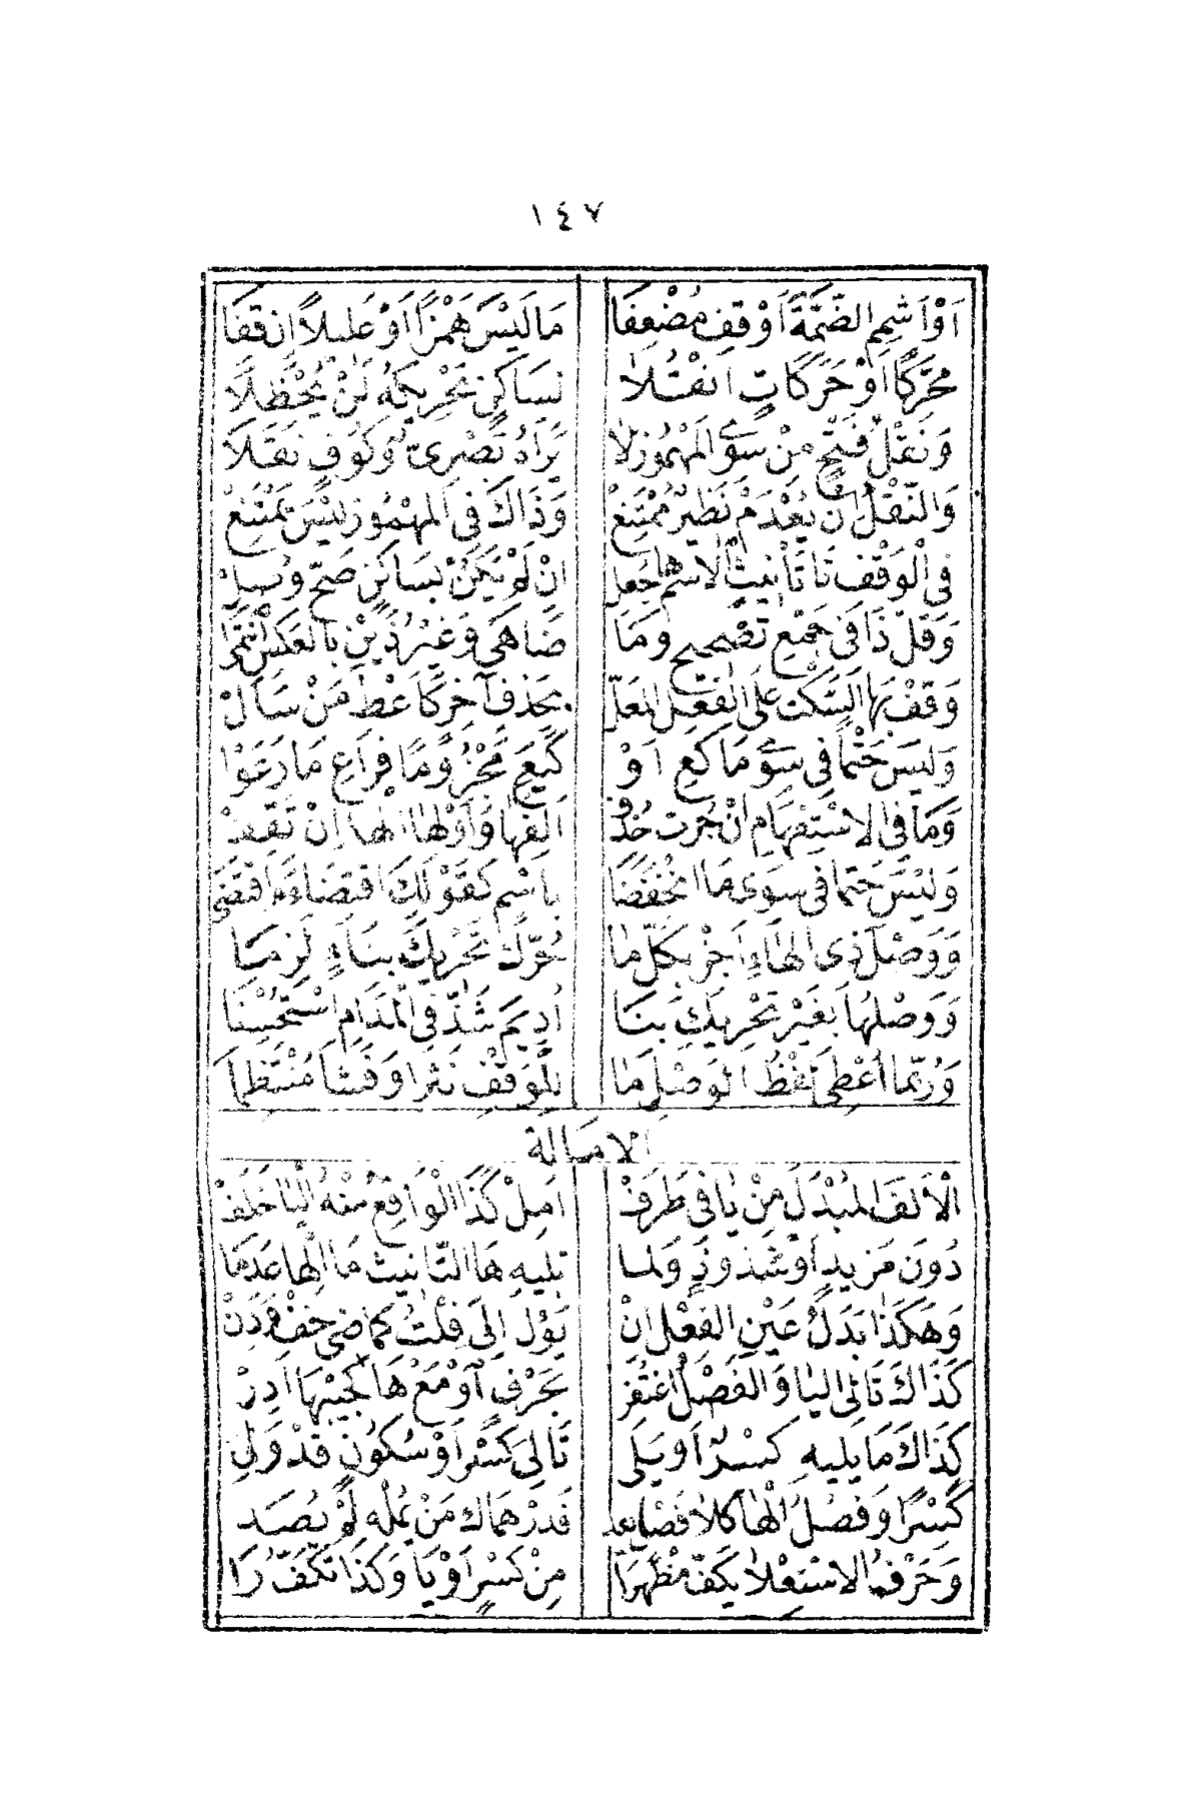 ١٤٧
أَوْ أَشِمِ الضَّمَّةَ أَوْ قِفْ مُضْعِفَا مَا لَيْسَ هَمْزًا أَوْ عَلِيلًا إِنْ قَفَا
مُحَرَّكًا أَوْ حَرَكَاتٍ انْقُلَا لِسَاكِنٍ تَحْرِيكُهُ لَنْ يُحْظَلَا
وَنَقْلُ فَتْحٍ مِنْ سِوَى الْمَهْمُوزِ لَا يَرَاهُ بَصْرِيٌّ وَكُوفٍ نَقَلَا
وَالنَّقْلُ إِنْ يُعْدَمْ نَظِيرٌ مُمْتَنِعْ وَذَاكَ فِي الْمَهْمُوزِ لَيْسَ يَمْتَنِعْ
فِي الْوَقْفِ تَا تَأْنِيثِ الِاسْمِ هَا جُعِلْ إِنْ لَمْ يَكُنْ بِسَاكِنٍ صَحَّ وُصِلْ
وَقَلَّ ذَا فِي جَمْعِ تَصْحِيحٍ وَمَا ضَاهَى وَغَيْرُ ذَيْنِ بِالْعَكْسِ انْتَمَى
وَقِفْ بِهَا السَّكْتِ عَلَى الْفِعْلِ الْمُعَلّ بِحَذْفِ آخِرٍ كَأَعْطِ مَنْ سَأَلْ
وَلَيْسَ حَتْمًا فِي سِوَى مَا كَعِ أَوْ كَيَعِ مَجْزُومًا فَرَاعِ مَا رَعَوْا
وَمَا فِي الِاسْتِفْهَامِ إِنْ جُرَّتْ حُذِفْ أَلِفُهَا وَأَوْلِهَا الْهَا إِنْ تَقِفْ
وَلَيْسَ حَتْمًا فِي سِوَى مَا انْخَفَضَا بِاسْمٍ كَقَوْلِكَ اقْتِضَاءَ مَ اقْتَضَى
وَوَصْلَ ذِي الْهَاءِ أَجِزْ بِكُلِّ مَا حُرِّكَ تَحْرِيكَ بِنَاءٍ لَزِمَا
وَوَصْلُهَا بِغَيْرِ تَحْرِيكِ بِنَا أُدِيمَ شَذَّ فِي الْمُدَامِ اسْتُحْسِنَا
وَرُبَّمَا أُعْطِيَ لَفْظُ الْوَصْلِ مَا لِلْوَقْفِ نَثْرًا وَفَشَا مُنْتَظِمَا
الإمالة
الْأَلِفَ الْمُبْدَلَ مِنْ يَا فِي طَرَفْ أَمِلْ كَذَا الْوَاقِعُ مِنْهُ الْيَا خَلَفْ
دُونَ مَزِيدٍ أَوْ شُذُوذٍ وَلِمَا تَلِيهِ هَا التَّأْنِيثِ مَا الْهَا عَدِمَا
وَهَكَذَا بَدَلُ عَيْنِ الْفِعْلِ إِنْ يَؤُلْ إِلَى فِلْتُ كَمَاضِي خَفْ وَدِنْ
كَذَاكَ تَالِي الْيَا وَالْفَصْلُ اغْتُفِرْ بِحَرْفٍ أَوْ مَعْ هَا كَجَيْبَهَا أَدِرْ
كَذَاكَ مَا يَلِيهِ كَسْرٌ أَوْ يَلِي تَالِيَ كَسْرٍ أَوْ سُكُونٍ قَدْ وَلِي
كَسْرًا وَفَصْلُ الْهَا كَلَا فَصْلٍ يُعَدّ فَدِرْهَمَاكَ مَنْ يُمِلْهُ لَمْ يُصَدّ
وَحَرْفُ الِاسْتِعْلَا يَكُفُّ مُظْهَرَا مِنْ كَسْرٍ أَوْ يَا وَكَذَا تَكُفُّ رَا